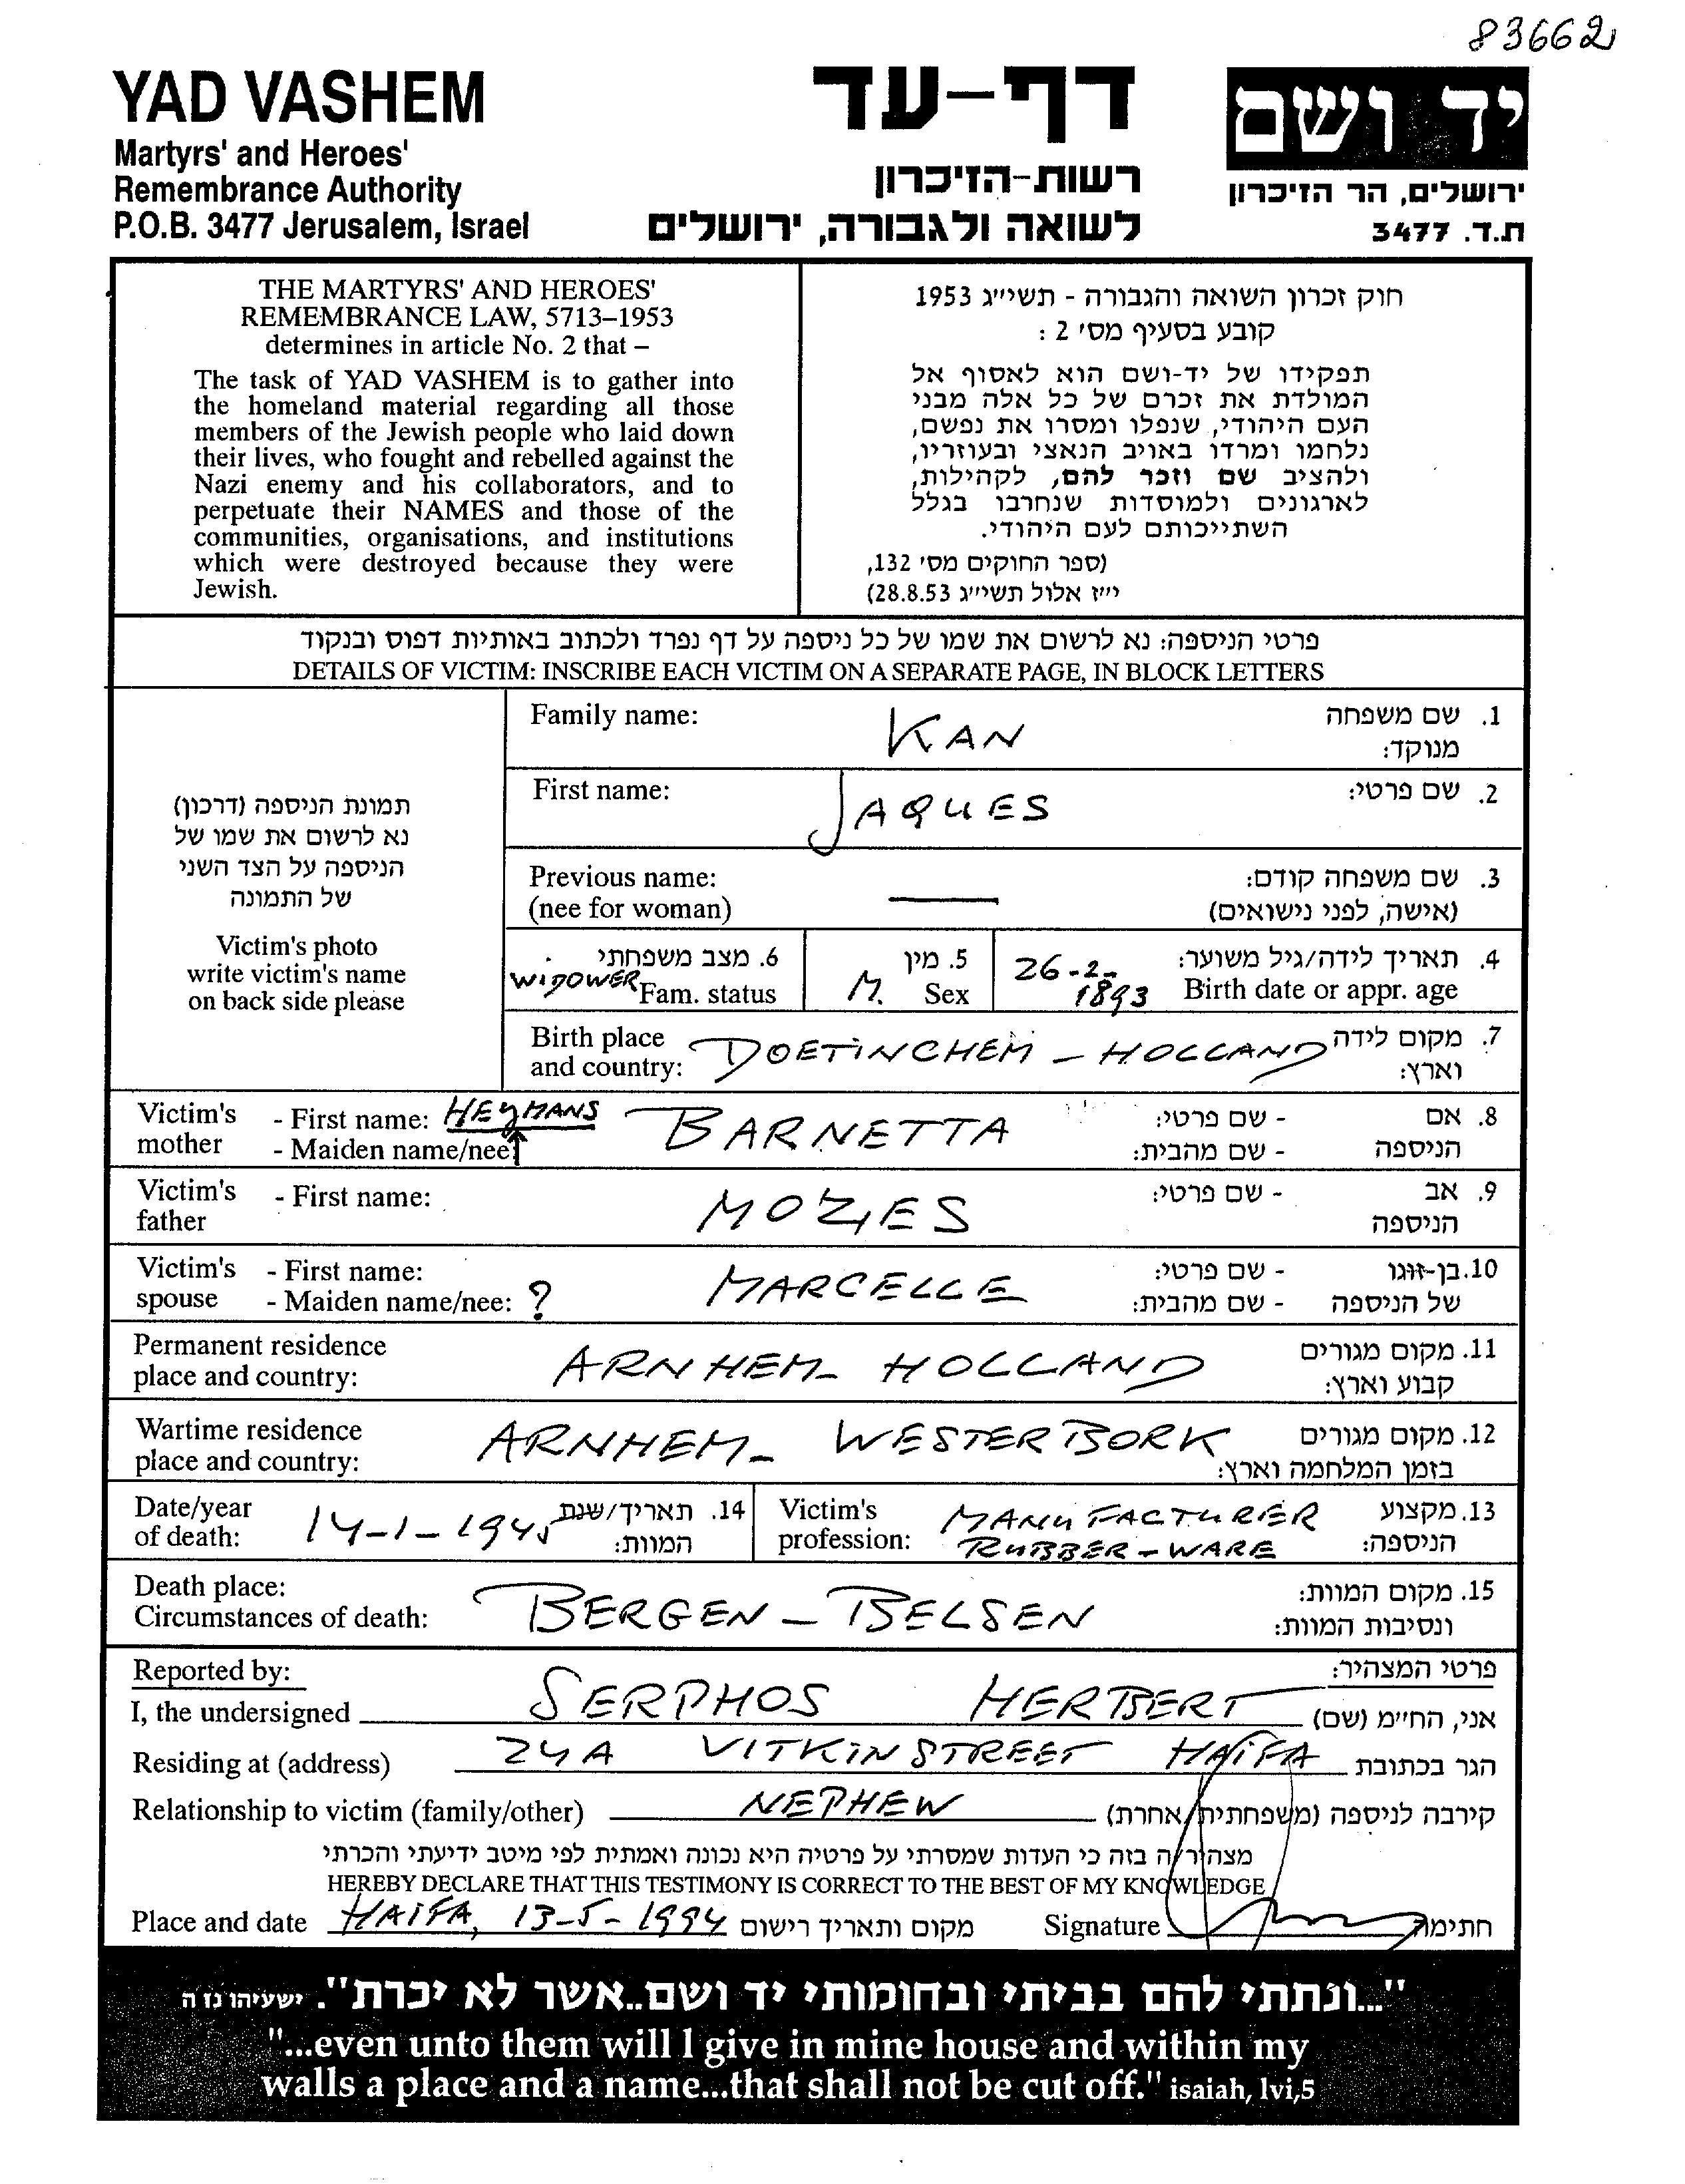 83662
YAD VASHEM
Martyrs' and Heroes'
Remembrance Authority
P.O.B. 3477 Jerusalem, Israel
דף-עד
רשות-הזיכרון
לשואה ולגבורה, ירושלים
יד ושם
ירושלים, הר הזיכרון
ת.ד. 3477
THE MARTYRS' AND HEROES'
REMEMBRANCE LAW, 5713–1953
determines in article No. 2 that –
The task of YAD VASHEM is to gather into
the homeland material regarding all those
members of the Jewish people who laid down
their lives, who fought and rebelled against the
Nazi enemy and his collaborators, and to
perpetuate their NAMES and those of the
communities, organisations, and institutions
which were destroyed because they were
Jewish.
חוק זכרון השואה והגבורה - תשי״ג 1953
קובע בסעיף מס׳ 2 :
תפקידו של יד-ושם הוא לאסוף אל
המולדת את זכרם של כל אלה מבני
העם היהודי, שנפלו ומסרו את נפשם,
נלחמו ומרדו באויב הנאצי ובעוזריו,
ולהציב שם וזכר להם, לקהילות,
לארגונים ולמוסדות שנחרבו בגלל
השתייכותם לעם היהודי.
(ספר החוקים מס׳ 132,
י״ז אלול תשי״ג 28.8.53)
פרטי הניספה: נא לרשום את שמו של כל ניספה על דף נפרד ולכתוב באותיות דפוס ובנקוד
DETAILS OF VICTIM: INSCRIBE EACH VICTIM ON A SEPARATE PAGE, IN BLOCK LETTERS
תמונת הניספה (דרכון)
נא לרשום את שמו של
הניספה על הצד השני
של התמונה
Victim's photo
write victim's name
on back side please
Family name: KAN 1. שם משפחה
מנוקד:
First name: JAQUES 2. שם פרטי:
Previous name: — 3. שם משפחה קודם:
(nee for woman) (אישה, לפני נישואים)
6. מצב משפחתי 5. מין 26-2- 4. תאריך לידה/גיל משוער:
WIDOWER Fam. status M. Sex 1893 Birth date or appr. age
Birth place DOETINCHEM - HOLLAND 7. מקום לידה
and country: וארץ:
Victim's - First name: HEYMANS BARNETTA - שם פרטי: 8. אם
mother - Maiden name/nee: - שם מהבית: הניספה
Victim's - First name: MOZES - שם פרטי: 9. אב
father הניספה
Victim's - First name: MARCELLE - שם פרטי: 10. בן-זוגו
spouse - Maiden name/nee: ? - שם מהבית: של הניספה
Permanent residence ARNHEM - HOLLAND 11. מקום מגורים
place and country: קבוע וארץ:
Wartime residence ARNHEM - WESTERBORK 12. מקום מגורים
place and country: בזמן המלחמה וארץ:
Date/year 14-1-1945 14. תאריך/שנת Victim's MANUFACTURER 13. מקצוע
of death: המוות: profession: RUBBER-WARE הניספה:
Death place: BERGEN - BELSEN 15. מקום המוות:
Circumstances of death: ונסיבות המוות:
Reported by: פרטי המצהיר:
I, the undersigned SERPHOS HERBERT אני, הח״מ (שם)
Residing at (address) 24A VITKIN STREET HAIFA הגר בכתובת
Relationship to victim (family/other) NEPHEW קירבה לניספה (משפחתית/אחרת)
מצהיר/ה בזה כי העדות שמסרתי על פרטיה היא נכונה ואמתית לפי מיטב ידיעתי והכרתי
HEREBY DECLARE THAT THIS TESTIMONY IS CORRECT TO THE BEST OF MY KNOWLEDGE
Place and date HAIFA, 13-5-1994 מקום ותאריך רישום Signature חתימה
"...ונתתי להם בביתי ובחומותי יד ושם..אשר לא יכרת". ישעיהו נז ה
"...even unto them will I give in mine house and within my
walls a place and a name...that shall not be cut off." isaiah, lvi,5